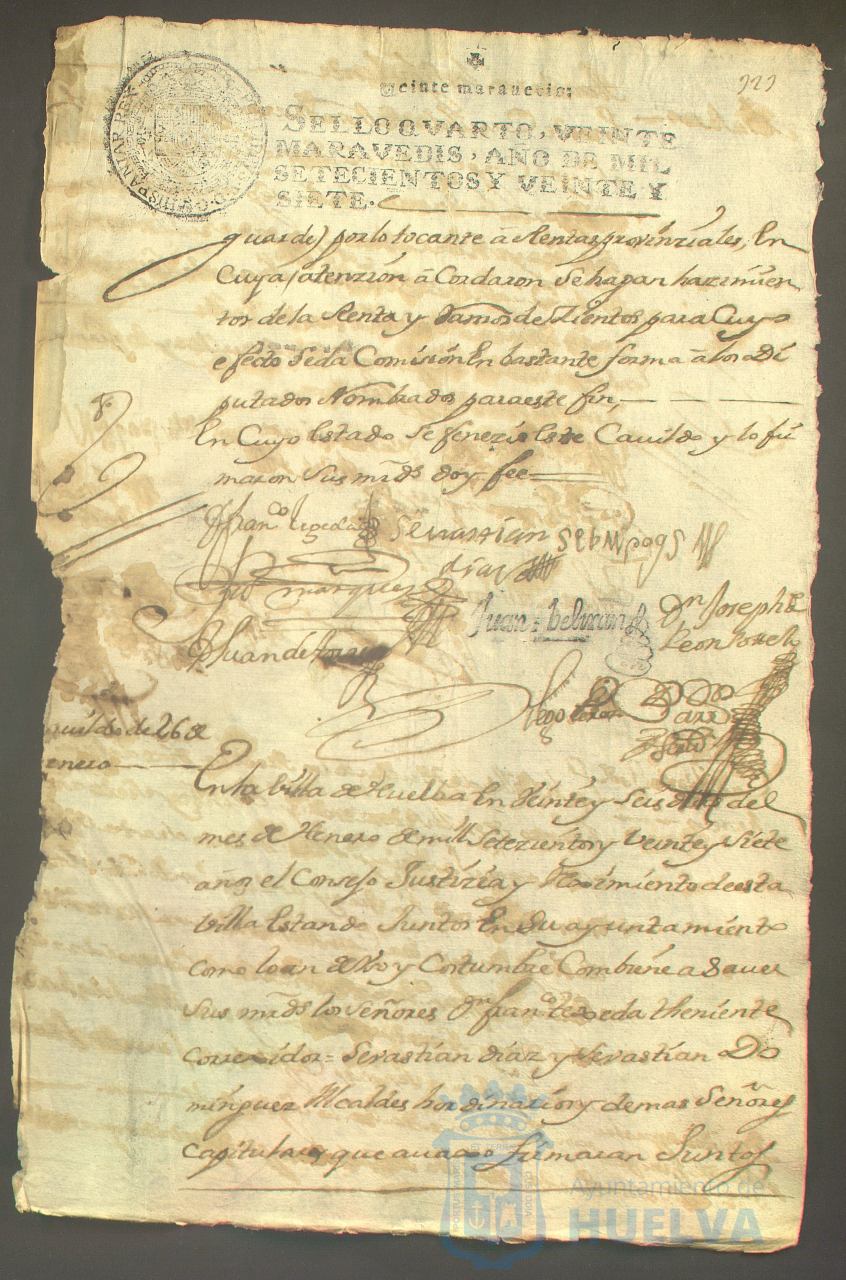 Veinte maravedis;
SELLO QVARTO, VEINTE
MARAVEDIS, AÑO DE MIL
SETECIENTOS Y VEINTE Y
SIETE.
por lo tocante â Rentas provinziales, En
Cuya atenzion â Cordaron Se hagan hazimien
tos de la Renta y Ramos de Zientos para Cuyo
efecto Se da Comision En bastante forma â los Di
putados Nombrados para este fin,
En Cuyo Estado Se fenezio Este Cavildo y lo fir
maron Sus mrds doy fee
Sevastian
diaz
marquez
Juan beltran
Dn Joseph de
Leon
Juan de
Diego
Cavildo de 26 de
enero
En la Villa de Huelba En Veinte y Seis dias del
mes de Henero de mill Setezientos y Veinte y Siete
años el Consejo Justizia y Reximiento de esta
Villa Estando Juntos En Su ayuntamiento
como lo an de Uso y Costumbre Combiene a Saver
Sus mrds los Señores Dn franco zepeda theniente
Correxidor = Sevastian diaz y Sevastian Do
minguez Alcaldes hordinarios y demas Señores
Capitulares que avaxo firmaran Juntos
Ayuntamiento de
HUELVA